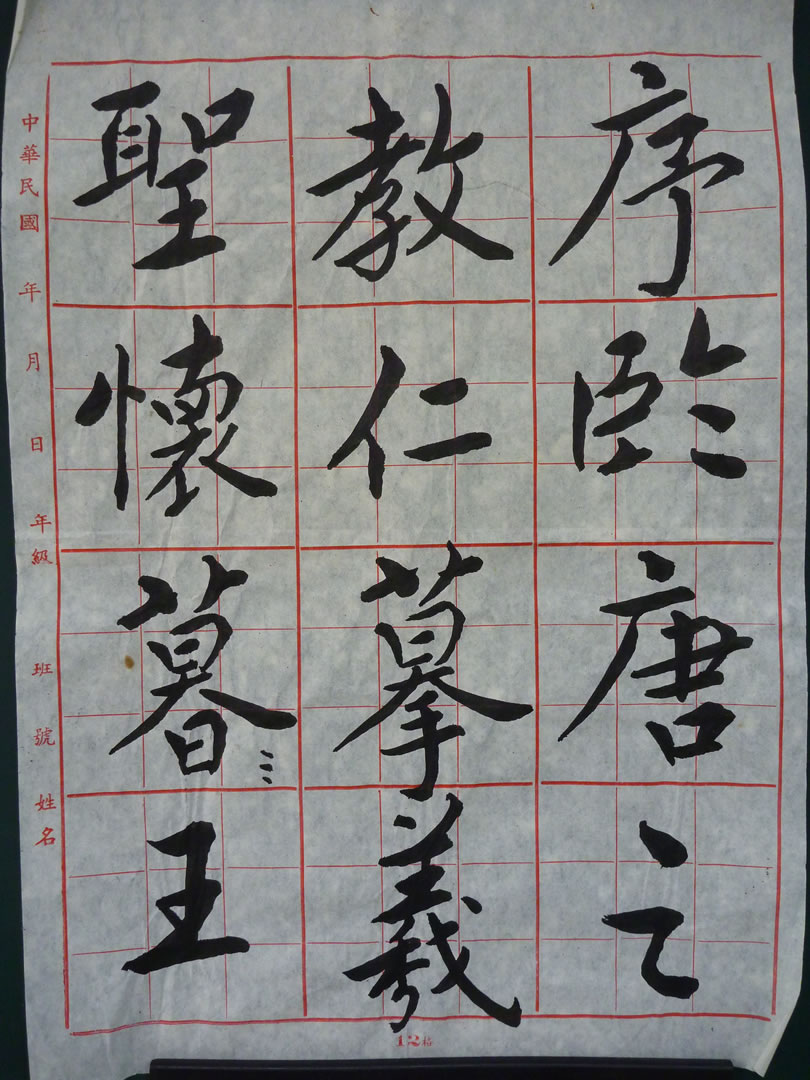 聖教序
懷仁臨
暮摹唐
王羲之
中華民國 年 月 日 年級 班 號 姓名
12格